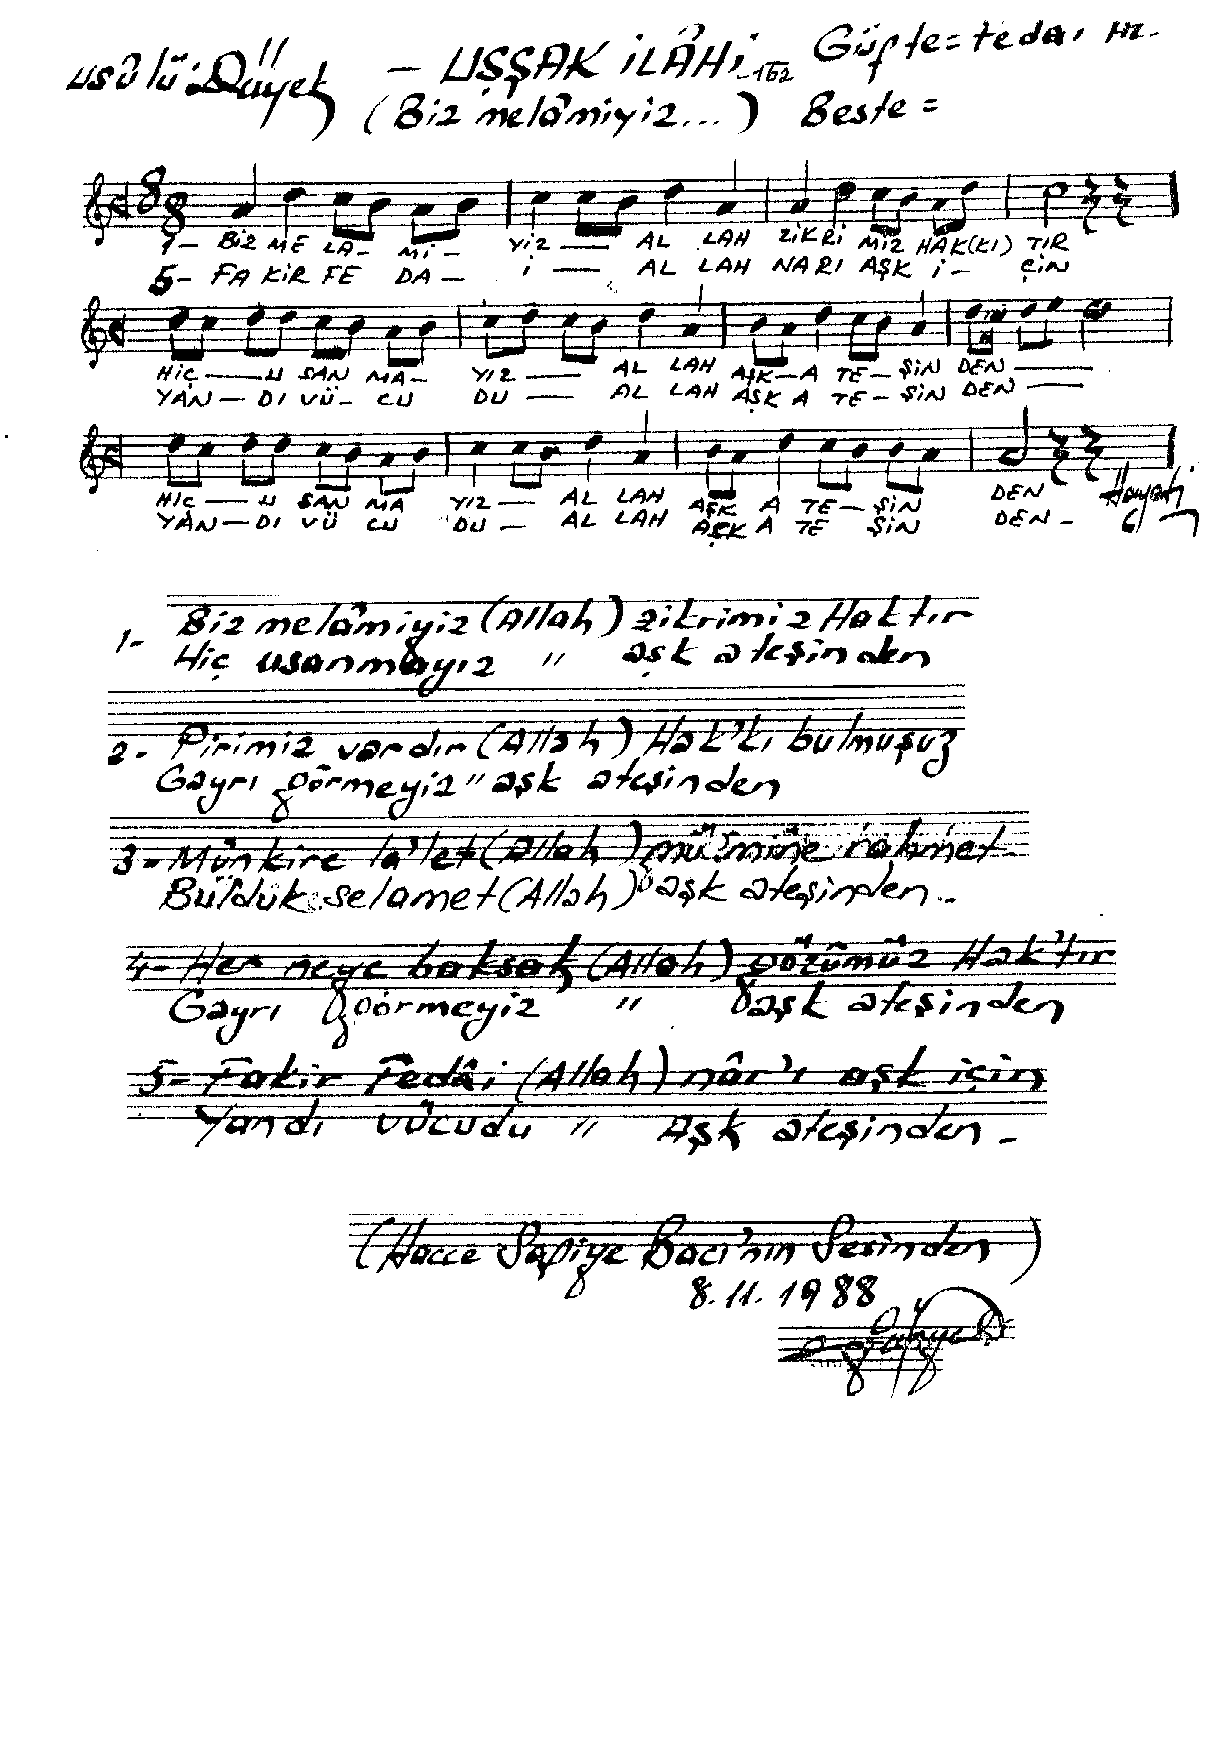 usûlü: Düyek — UŞŞAK İLÂHİ -162 Güfte = Fedai Hz.
(Biz melâmiyiz...) Beste =
8 8
1- BİZ ME LA- Mİ- YİZ — AL LAH ZİKRİ MİZ HAK(KI) TIR
5- FA KİR FE DA- İ — AL LAH NARI AŞK İ- ÇİN
HİÇ — U SAN MA- YIZ — AL LAH AŞK-A TE- ŞİN DEN —
YAN- DI VÜ- CU DU — AL LAH AŞK A TE- ŞİN DEN —
HİÇ — U SAN MA YIZ — AL LAH AŞK A TE- ŞİN DEN
YAN- DI VÜ CU DU — AL LAH AŞK A TE ŞİN DEN-
1- Biz melâmiyiz (Allah) zikrimiz Haktır
Hiç usanmayız " aşk ateşinden
2- Pirimiz vardır (Allah) Hak'kı bulmuşuz
Gayrı görmeyiz " aşk ateşinden
3- Münkire la'let (Allah) mü'mine rahmet
Bulduk selamet (Allah) aşk ateşinden..
4- Her neye baksak (Allah) gözümüz Hak'tır
Gayrı görmeyiz " aşk ateşinden
5- Fakir Fedâi (Allah) nâr'ı aşk için
Yandı vücudu " Aşk ateşinden -
(Hacce Safiye Bacı'nın Sesinden)
8.11.1988